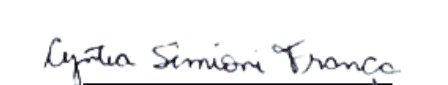 Cyntia Simioni França